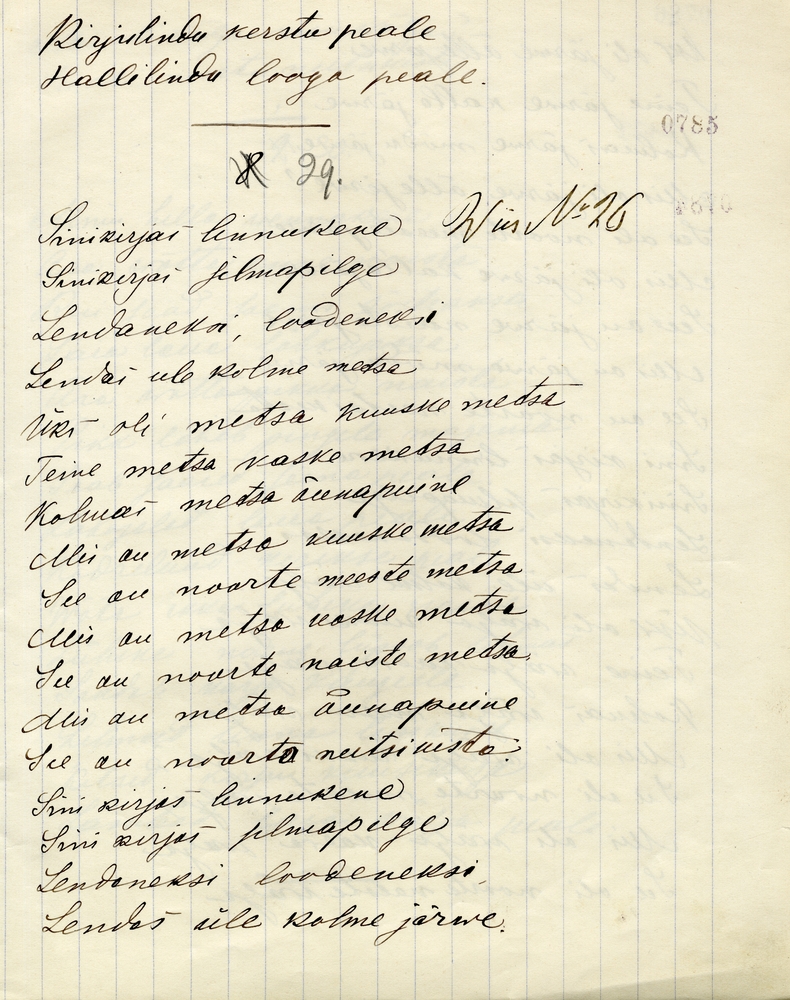 Kirjulindu kerstu peale
Hallilindu looga peale.
0785
8 29.
Sinikirjas linnukene Wiis № 26
Sinikirjas silmapilge
Lendaneksi, loodeneksi
Lendas ule kolme metsa
Üks oli metsa kuuske metsa
Teine metsa kaske metsa
Kolmas metsa õunapuine
Mis on metsa kuuske metsa
See on noorte meeste metsa
Mis on metsa kaske metsa
See on noorte naiste metsa
Mis on metsa õunapuine
See on noorta neitsiista.
Sini kirjas linnukene
Sini kirjas silmapilge
Lendaneksi loodeneksi,
Lendas üle kolme järwe.